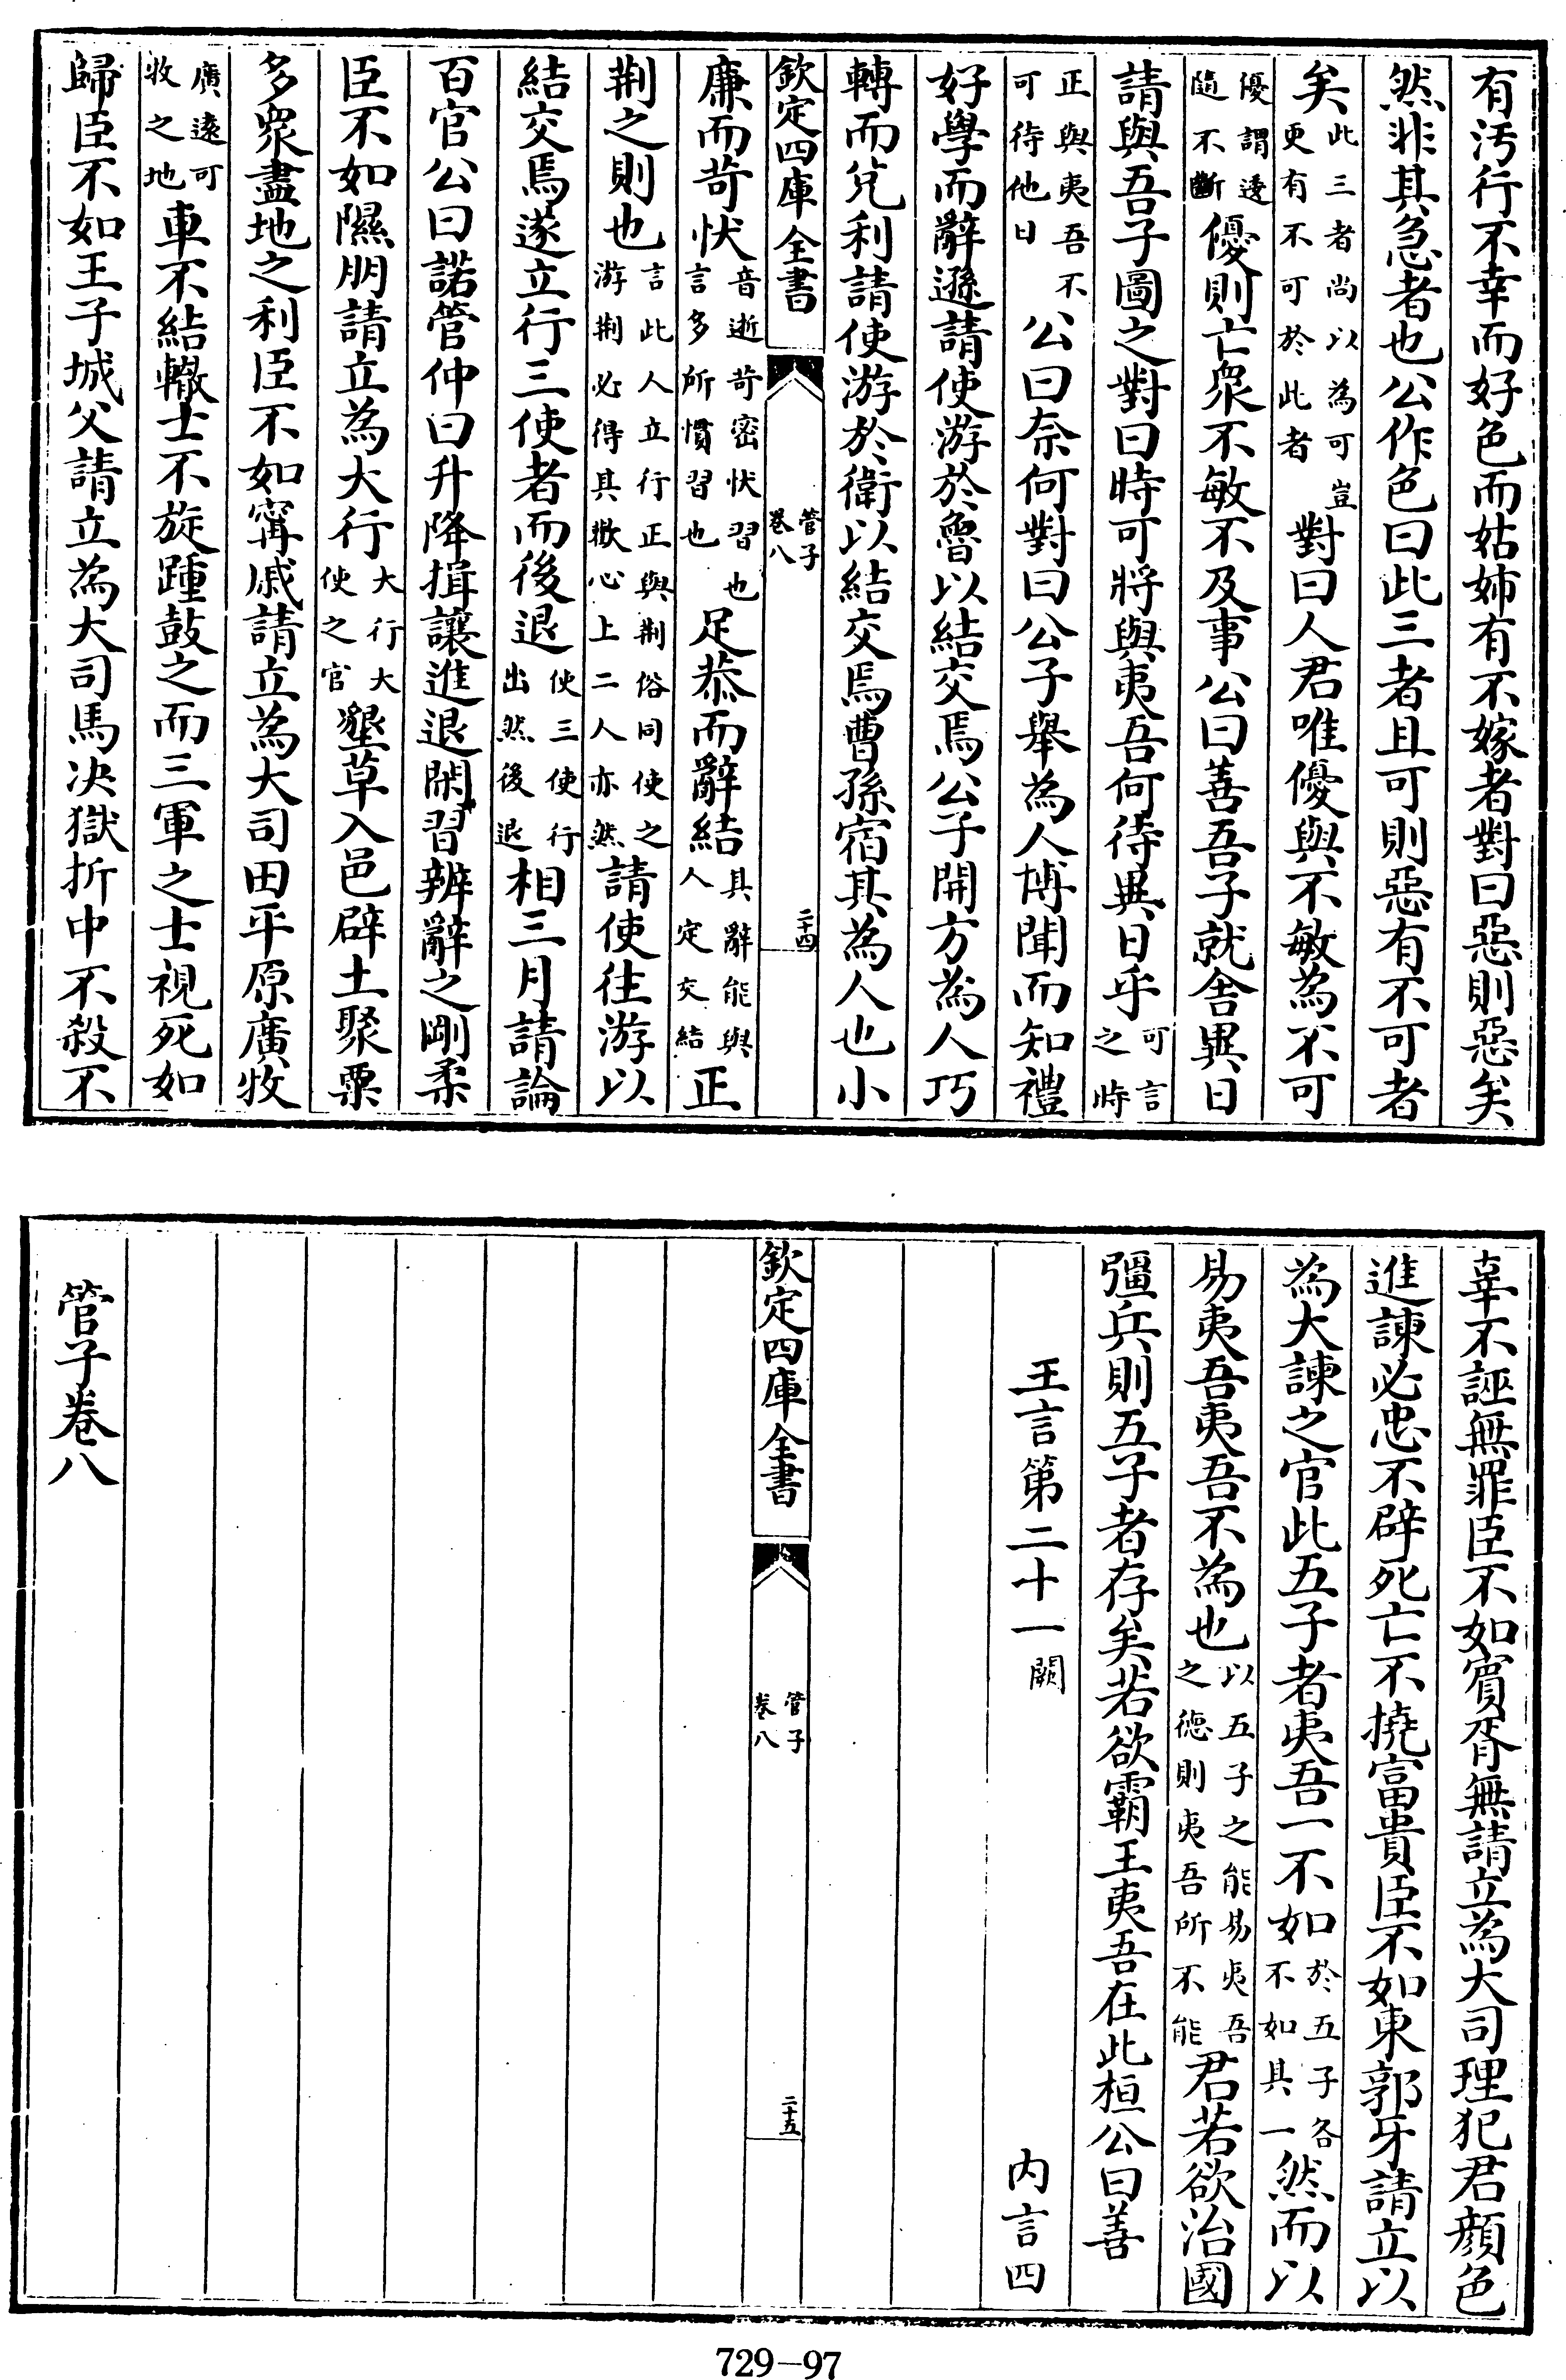 有汚行不幸而好色而姑姊有不嫁者對曰惡則惡矣
然非其急者也公作色曰此三者且可則惡有不可者
矣此三者尚以為可豈更有不可於此者對曰人君唯優與不敏為不可
優謂逶隨不斷優則亡衆不敏不及事公曰善吾子就舍異日
請與吾子圖之對曰時可將與夷吾何待異日乎可言之時
正與夷吾不可待他日公曰奈何對曰公子舉為人博聞而知禮
好學而辭遜請使游於魯以結交焉公子開方為人巧
轉而兊利請使游於衛以結交焉曹孫宿其為人也小
欽定四庫全書 管子 卷八 二十四
廉而苛忕音逝苛密忕習也言多所慣習也足恭而辭結其辭能與人定交結正
荆之則也言此人立行正與荆俗同使之游荆必得其歡心上二人亦然請使往游以
結交焉遂立行三使者而後退使三使行出然後退相三月請論
百官公曰諾管仲曰升降揖讓進退閑習辨辭之剛柔
臣不如隰朋請立為大行大行大使之官墾草入邑辟土聚粟
多衆盡地之利臣不如甯戚請立為大司田平原廣牧
廣遠可牧之地車不結轍士不旋踵鼓之而三軍之士視死如
歸臣不如王子城父請立為大司馬决獄折中不殺不
辜不誣無罪臣不如賓胥無請立為大司理犯君顔色
進諫必忠不辟死亡不撓富貴臣不如東郭牙請立以
為大諫之官此五子者夷吾一不如於五子各不如其一然而以
易夷吾夷吾不為也以五子之能易夷吾之德則夷吾所不能君若欲治國
彊兵則五子者存矣若欲霸王夷吾在此桓公曰善
王言第二十一闕 内言四
欽定四庫全書 管子 卷八 二十五
管子卷八
729-97